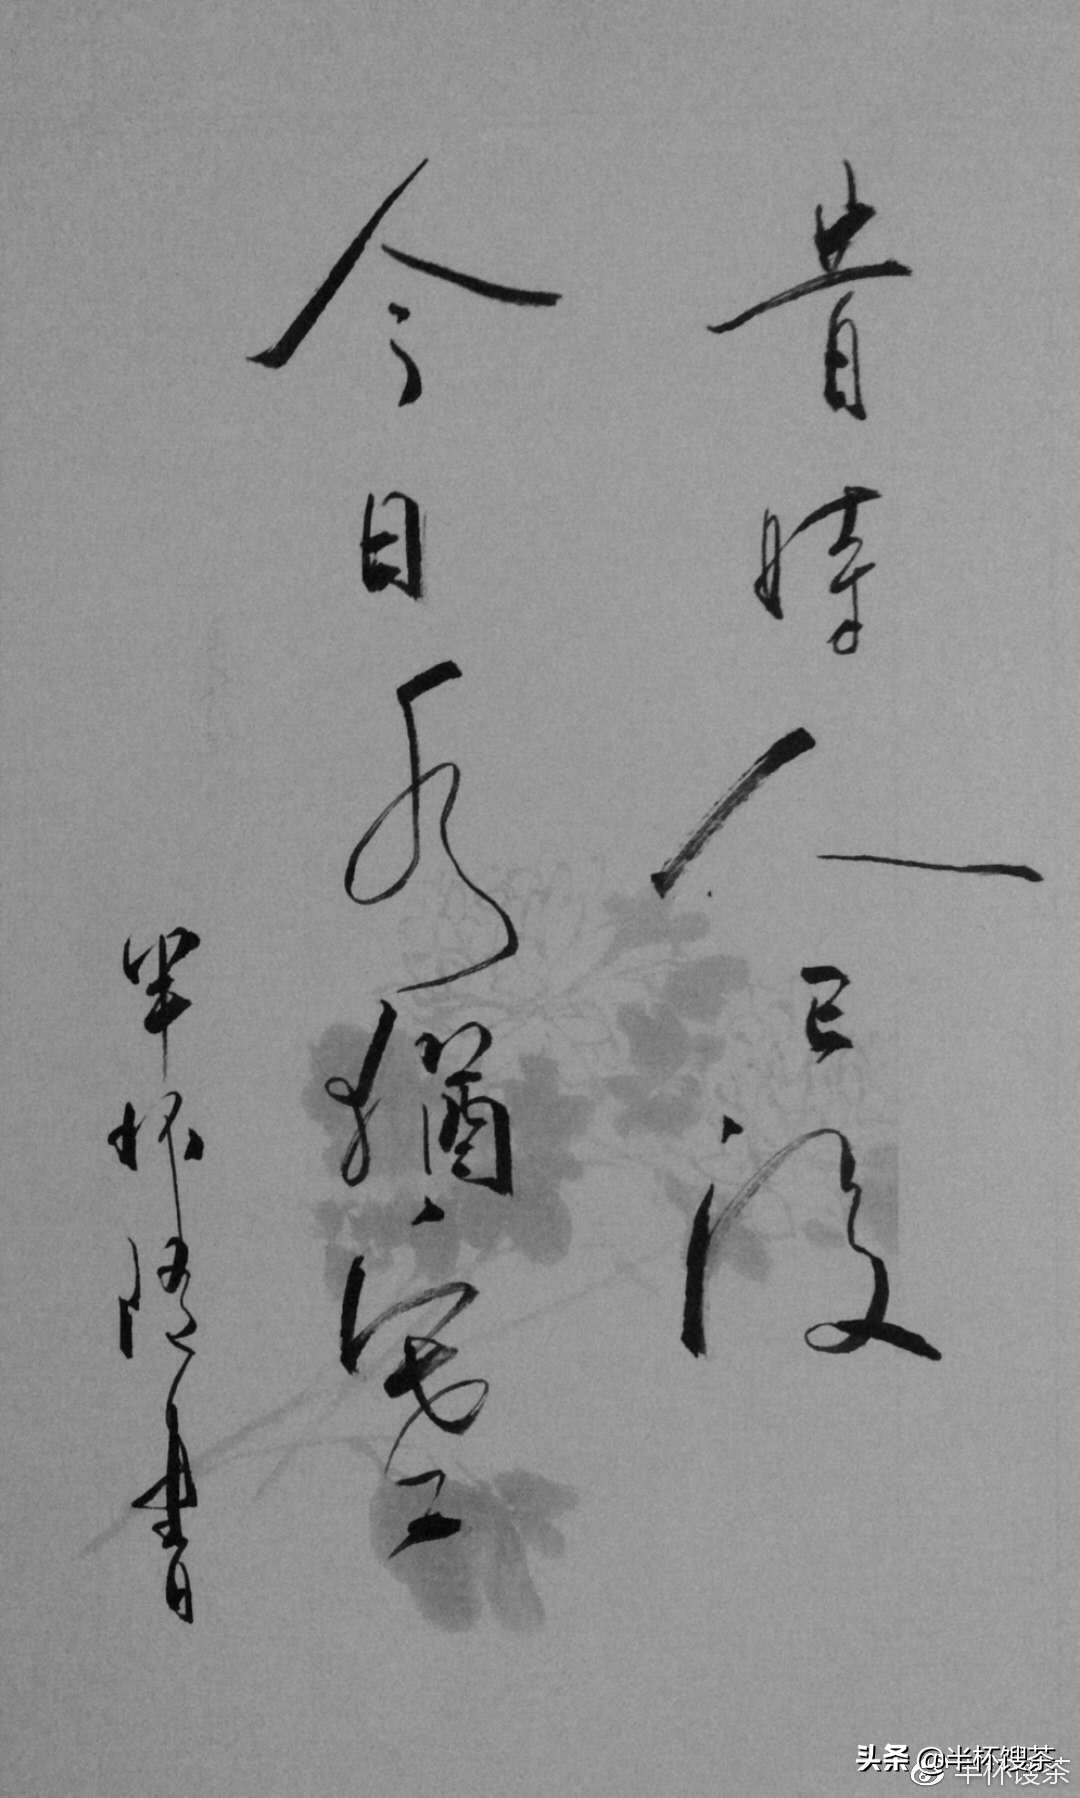 昔時人已没
今日水猶寒
半杯隋書
头条 @半杯馊茶
半杯馊茶